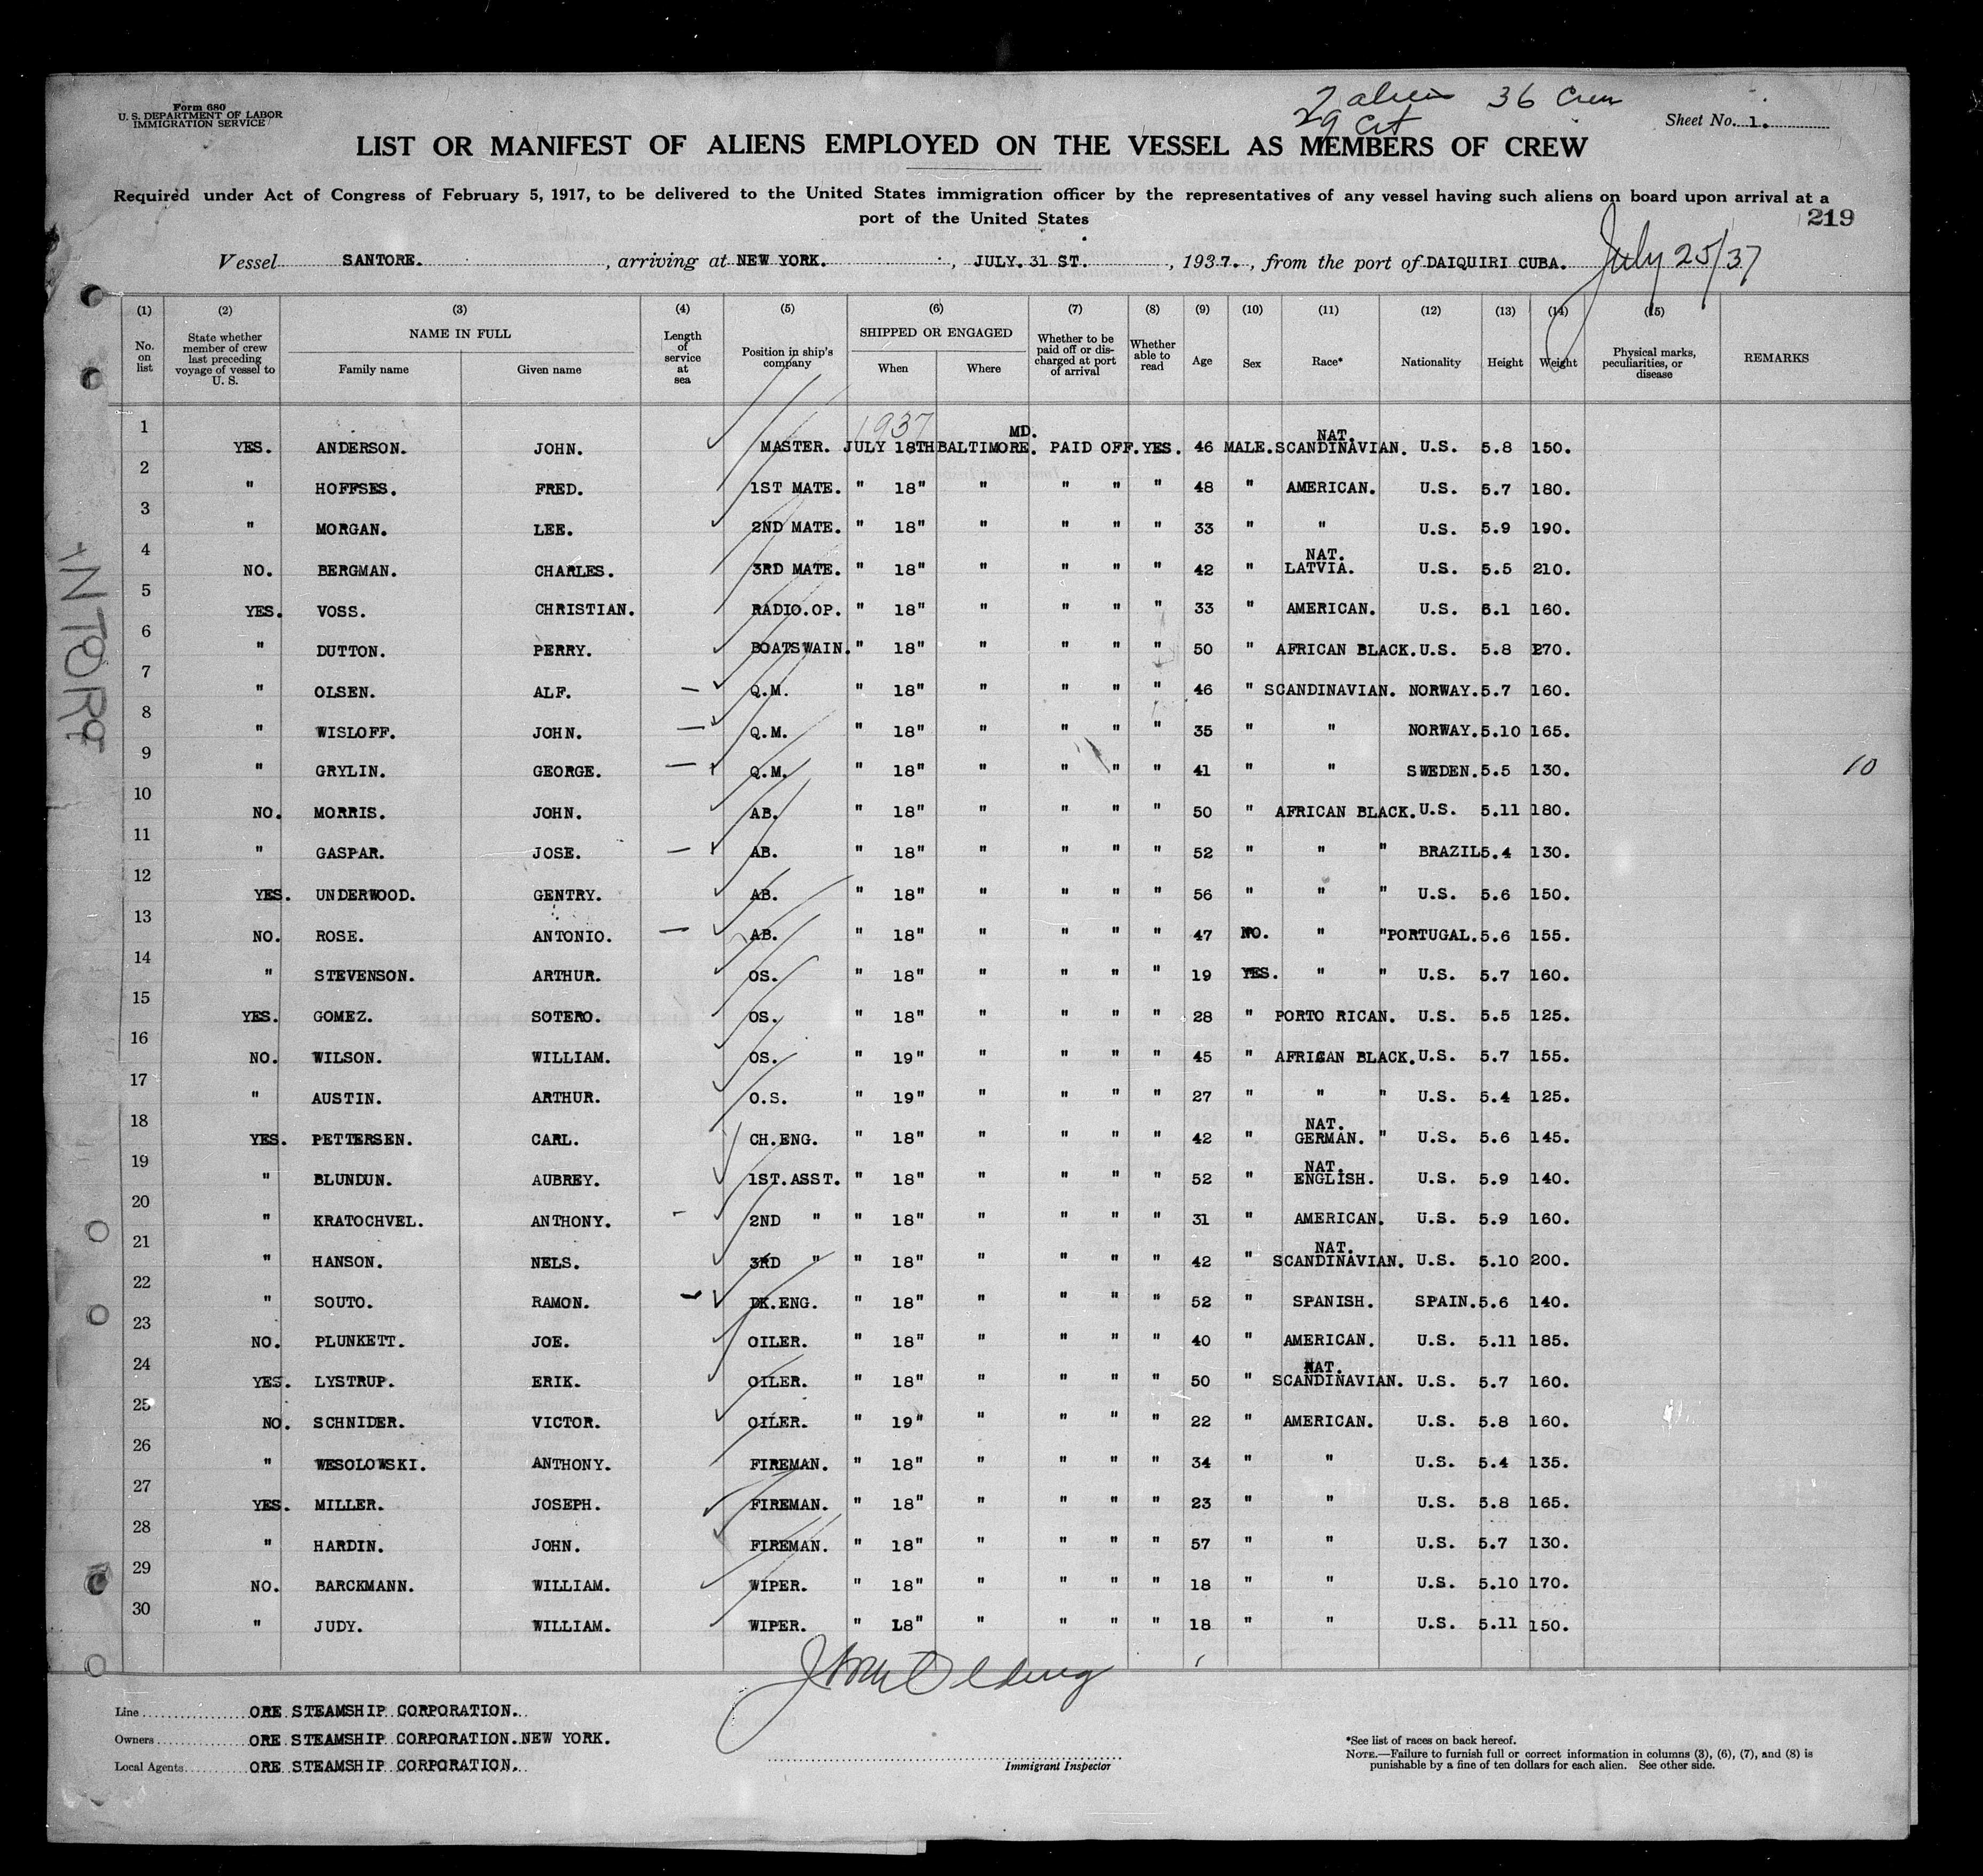 Form 680
U. S. DEPARTMENT OF LABOR
IMMIGRATION SERVICE
7 alien 36 Crew
29 Cit
Sheet No. 1.
LIST OR MANIFEST OF ALIENS EMPLOYED ON THE VESSEL AS MEMBERS OF CREW
Required under Act of Congress of February 5, 1917, to be delivered to the United States immigration officer by the representatives of any vessel having such aliens on board upon arrival at a
port of the United States
219
Vessel SANTORE. , arriving at NEW YORK. , JULY. 31 ST. , 1937. , from the port of DAIQUIRI CUBA. July 25/37
(1) (2) (3) (4) (5) (6) (7) (8) (9) (10) (11) (12) (13) (14) (15)
No. on list State whether member of crew last preceding voyage of vessel to U. S. NAME IN FULL Family name Given name Length of service at sea Position in ship's company SHIPPED OR ENGAGED When Where Whether to be paid off or discharged at port of arrival Whether able to read Age Sex Race* Nationality Height Weight Physical marks, peculiarities, or disease REMARKS
1937
1 YES. ANDERSON. JOHN. MASTER. JULY 18TH BALTIMORE. MD. PAID OFF. YES. 46 MALE. NAT. SCANDINAVIAN. U.S. 5.8 150.
2 " HOFFSES. FRED. 1ST MATE. " 18" " " " " 48 " AMERICAN. U.S. 5.7 180.
3 " MORGAN. LEE. 2ND MATE. " 18" " " " " 33 " " U.S. 5.9 190.
4 NO. BERGMAN. CHARLES. 3RD MATE. " 18" " " " " 42 " NAT. LATVIA. U.S. 5.5 210.
5 YES. VOSS. CHRISTIAN. RADIO.OP. " 18" " " " " 33 " AMERICAN. U.S. 6.1 160.
6 " DUTTON. PERRY. BOATSWAIN. " 18" " " " " 50 " AFRICAN BLACK. U.S. 5.8 270.
7 " OLSEN. ALF. Q.M. " 18" " " " " 46 " SCANDINAVIAN. NORWAY. 5.7 160.
8 " WISLOFF. JOHN. Q.M. " 18" " " " " 35 " " NORWAY. 5.10 165.
9 " GRYLIN. GEORGE. Q.M. " 18" " " " " 41 " " SWEDEN. 5.5 130. 10
10 NO. MORRIS. JOHN. AB. " 18" " " " " 50 " AFRICAN BLACK. U.S. 5.11 180.
11 " GASPAR. JOSE. AB. " 18" " " " " 52 " " " BRAZIL 5.4 130.
12 YES. UNDERWOOD. GENTRY. AB. " 18" " " " " 56 " " " U.S. 5.6 150.
13 NO. ROSE. ANTONIO. AB. " 18" " " " " 47 NO. " " PORTUGAL. 5.6 155.
14 " STEVENSON. ARTHUR. OS. " 18" " " " " 19 YES. " " U.S. 5.7 160.
15 YES. GOMEZ. SOTERO. OS. " 18" " " " " 28 " PORTO RICAN. U.S. 5.5 125.
16 NO. WILSON. WILLIAM. OS. " 19" " " " " 45 " AFRICAN BLACK. U.S. 5.7 155.
17 " AUSTIN. ARTHUR. O.S. " 19" " " " " 27 " " " U.S. 5.4 125.
18 YES. PETTERSEN. CARL. CH.ENG. " 18" " " " " 42 " NAT. GERMAN. " U.S. 5.6 145.
19 " BLUNDUN. AUBREY. 1ST.ASST. " 18" " " " " 52 " NAT. ENGLISH. U.S. 5.9 140.
20 " KRATOCHVEL. ANTHONY. 2ND " " 18" " " " " 31 " AMERICAN. U.S. 5.9 160.
21 " HANSON. NELS. 3RD " " 18" " " " " 42 " NAT. SCANDINAVIAN. U.S. 5.10 200.
22 " SOUTO. RAMON. DK.ENG. " 18" " " " " 52 " SPANISH. SPAIN. 5.6 140.
23 NO. PLUNKETT. JOE. OILER. " 18" " " " " 40 " AMERICAN. U.S. 5.11 185.
24 YES. LYSTRUP. ERIK. OILER. " 18" " " " " 50 " NAT. SCANDINAVIAN. U.S. 5.7 160.
25 NO. SCHNIDER. VICTOR. OILER. " 19" " " " " 22 " AMERICAN. U.S. 5.8 160.
26 " WESOLOWSKI. ANTHONY. FIREMAN. " 18" " " " " 34 " " U.S. 5.4 135.
27 YES. MILLER. JOSEPH. FIREMAN. " 18" " " " " 23 " " U.S. 5.8 165.
28 " HARDIN. JOHN. FIREMAN. " 18" " " " " 57 " " U.S. 5.7 130.
29 NO. BARCKMANN. WILLIAM. WIPER. " 18" " " " " 18 " " U.S. 5.10 170.
30 " JUDY. WILLIAM. WIPER. " 18" " " " " 18 " " U.S. 5.11 150.
Line ORE STEAMSHIP CORPORATION.
Owners ORE STEAMSHIP CORPORATION. NEW YORK.
Local Agents ORE STEAMSHIP CORPORATION.
Immigrant Inspector
*See list of races on back hereof.
NOTE.—Failure to furnish full or correct information in columns (3), (6), (7), and (8) is
punishable by a fine of ten dollars for each alien. See other side.